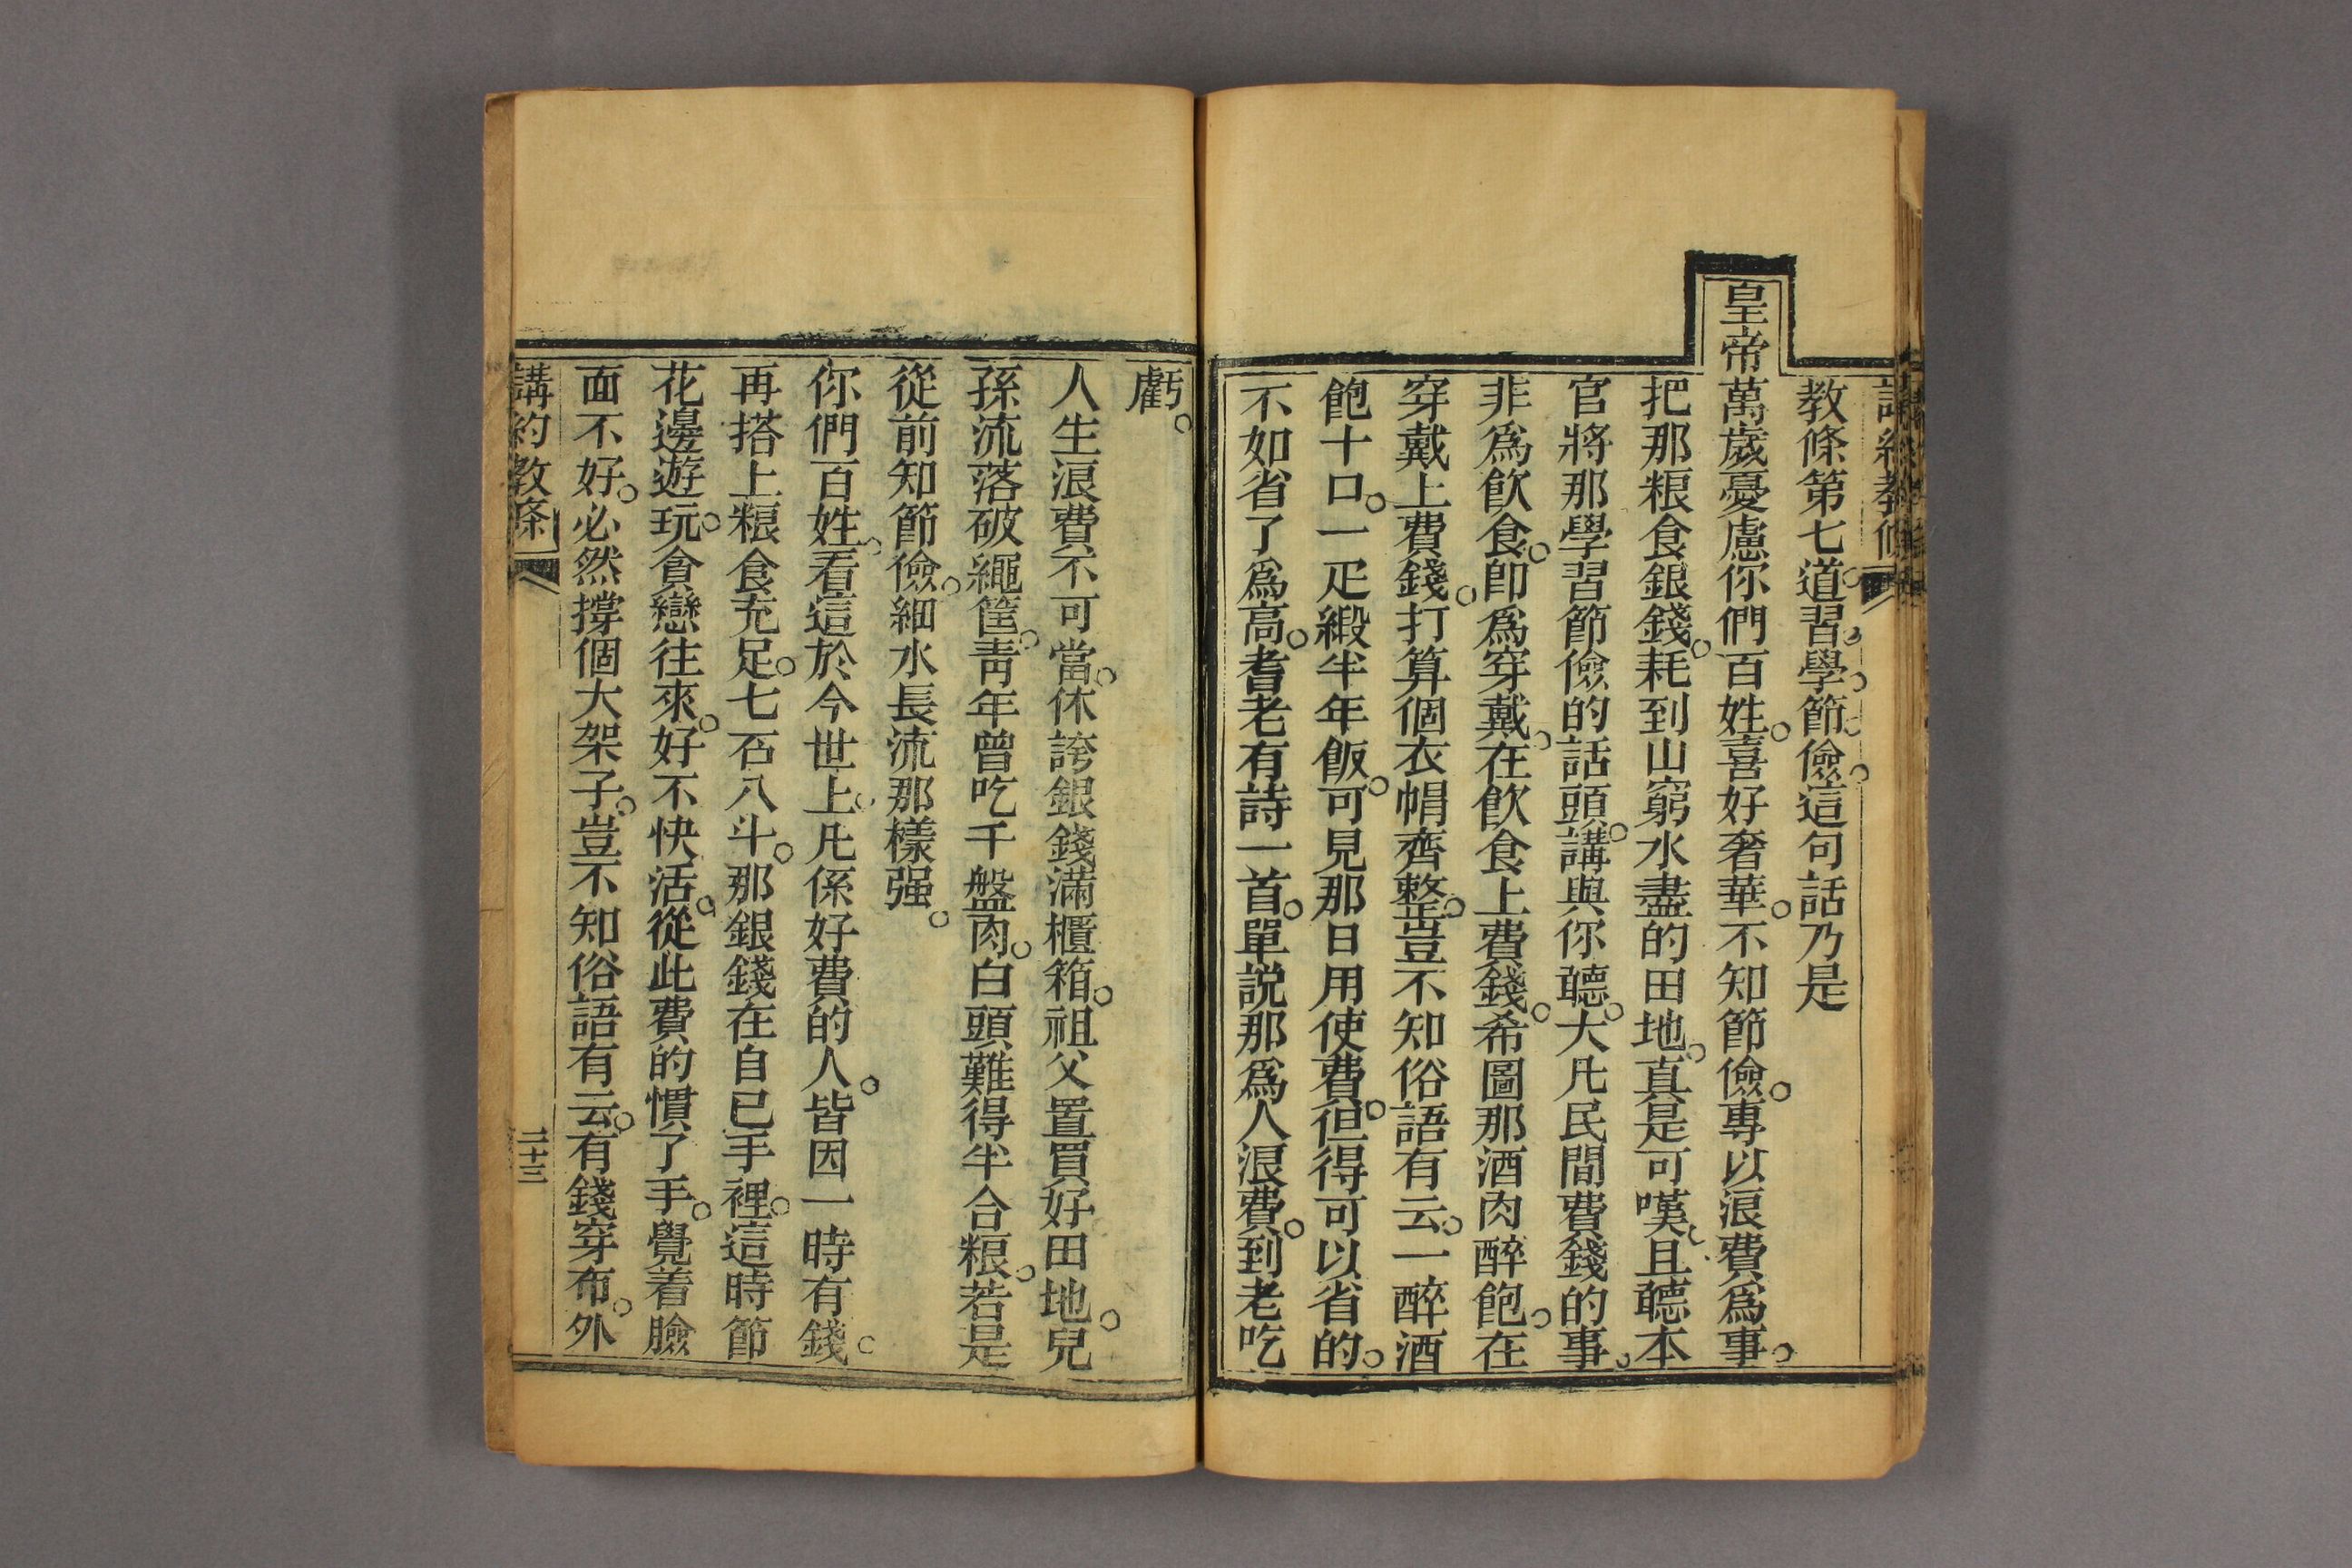 教條第七道。習學節儉。這句話乃是
皇帝萬歲憂慮你們百姓。喜好奢華。不知節儉。專以浪費爲事。
把那粮食銀錢。耗到山窮水盡的田地。真是可嘆。且聽本
官將那學習節儉的話頭。講與你聽。大凡民間費錢的事。
非爲飲食。卽爲穿戴。在飲食上費錢。希圖那酒肉醉飽。在
穿戴上費錢。打算個衣帽齊整。豈不知俗語有云。一醉酒
飽十口。一疋緞半年飯。可見那日用使費。但得可以省的。
不如省了爲高。耆老有詩一首。單説那爲人浪費。到老吃
虧。
人生浪費不可當。休誇銀錢滿櫃箱。祖父置買好田地。兒
孫流落破繩筐。靑年曾吃千盤肉。白頭難得半合粮。若是
從前知節儉。細水長流那樣强。
你們百姓。看這於今世上。凡係好費的人。皆因一時有錢。
再搭上粮食充足。七石八斗。那銀錢在自已手裡。這時節
花邊遊玩。貪戀往來。好不快活。從此費的慣了手。覺着臉
面不好。必然撐個大架子。豈不知俗語有云。有錢穿布。外
講約教條 二十三